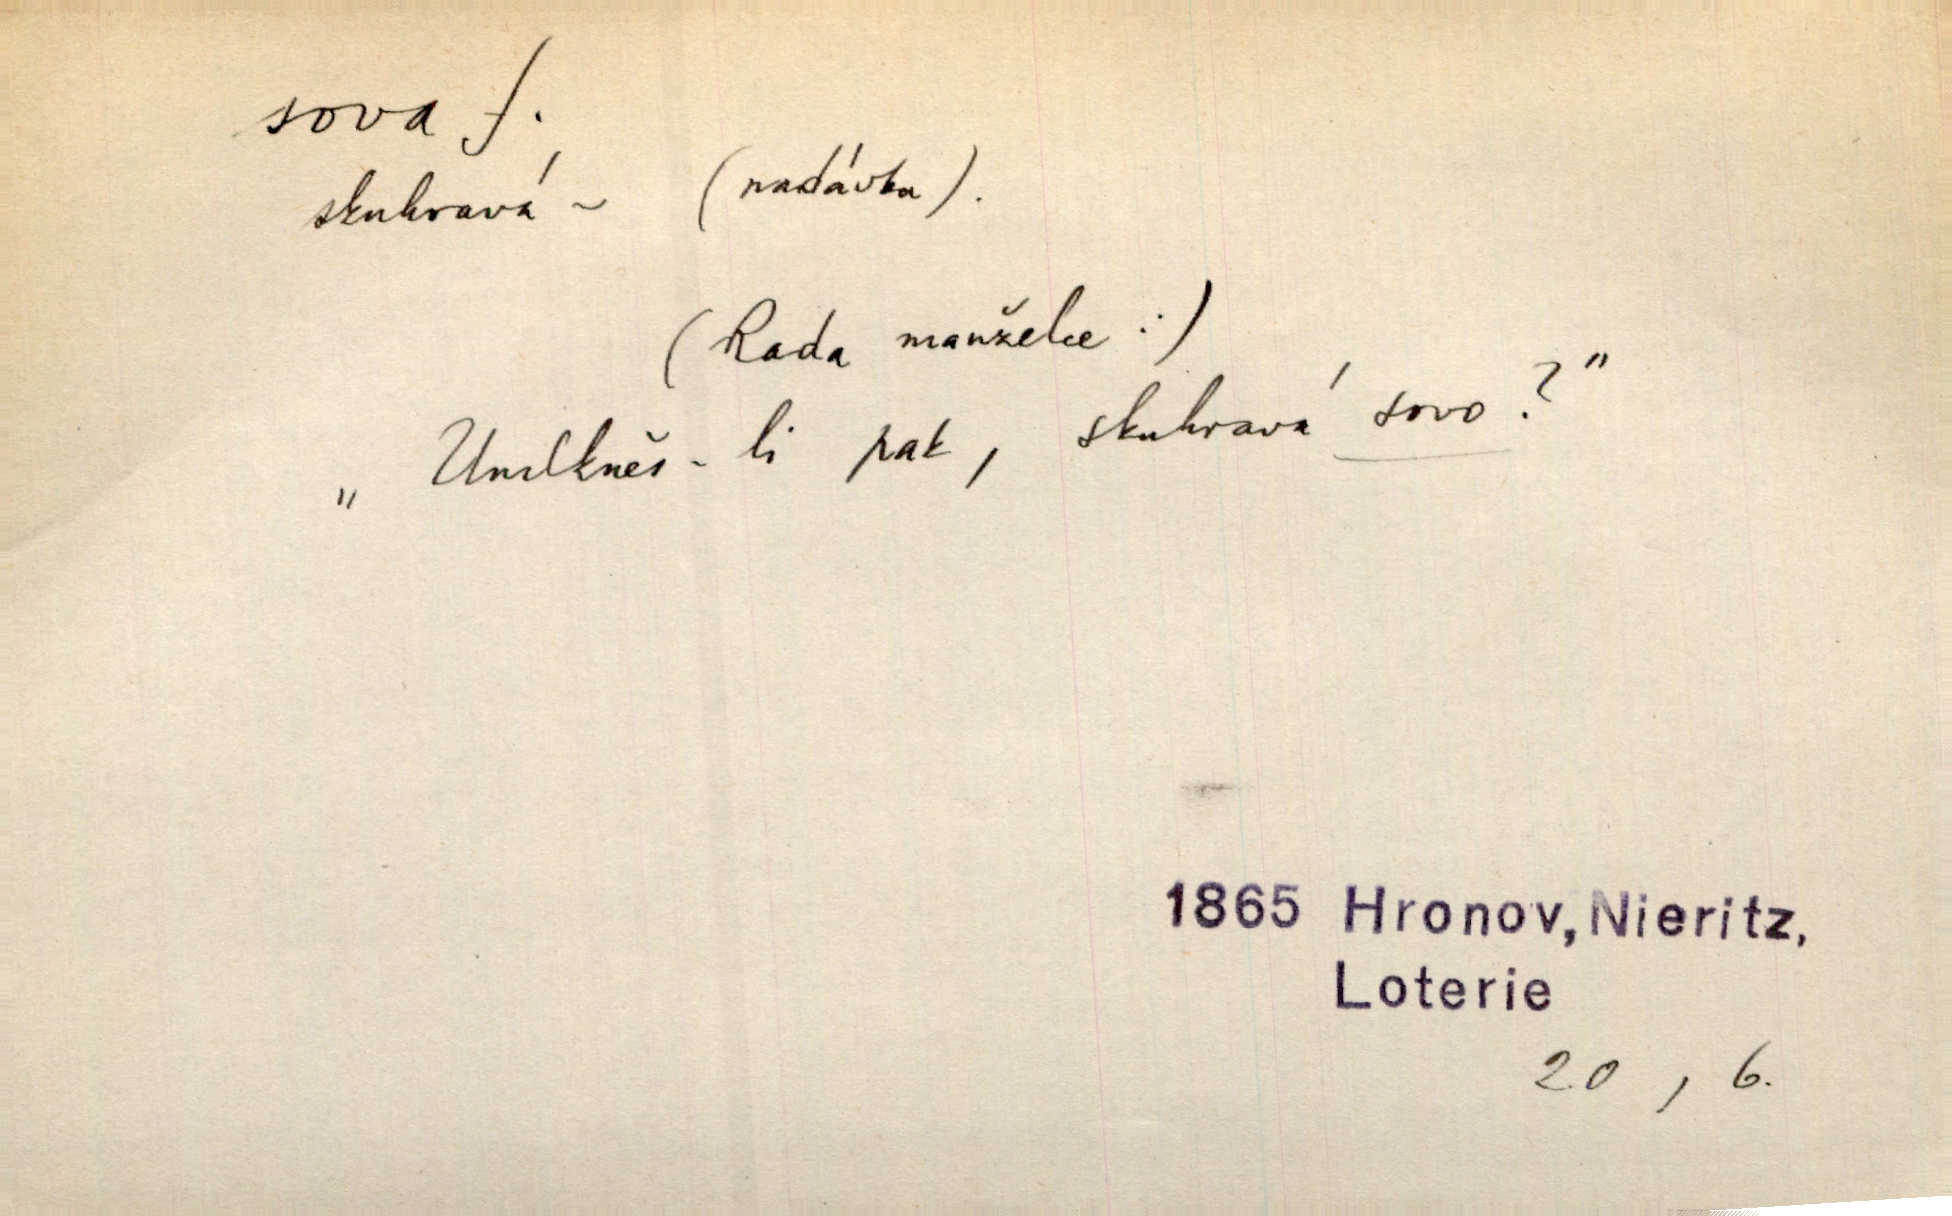 sova f.
skuhravá ~ (nadávka).
(Rada manželce :)
„Umlkneš-li pak, skuhravá sovo?"
1865 Hronov, Nieritz,
Loterie
20, 6.